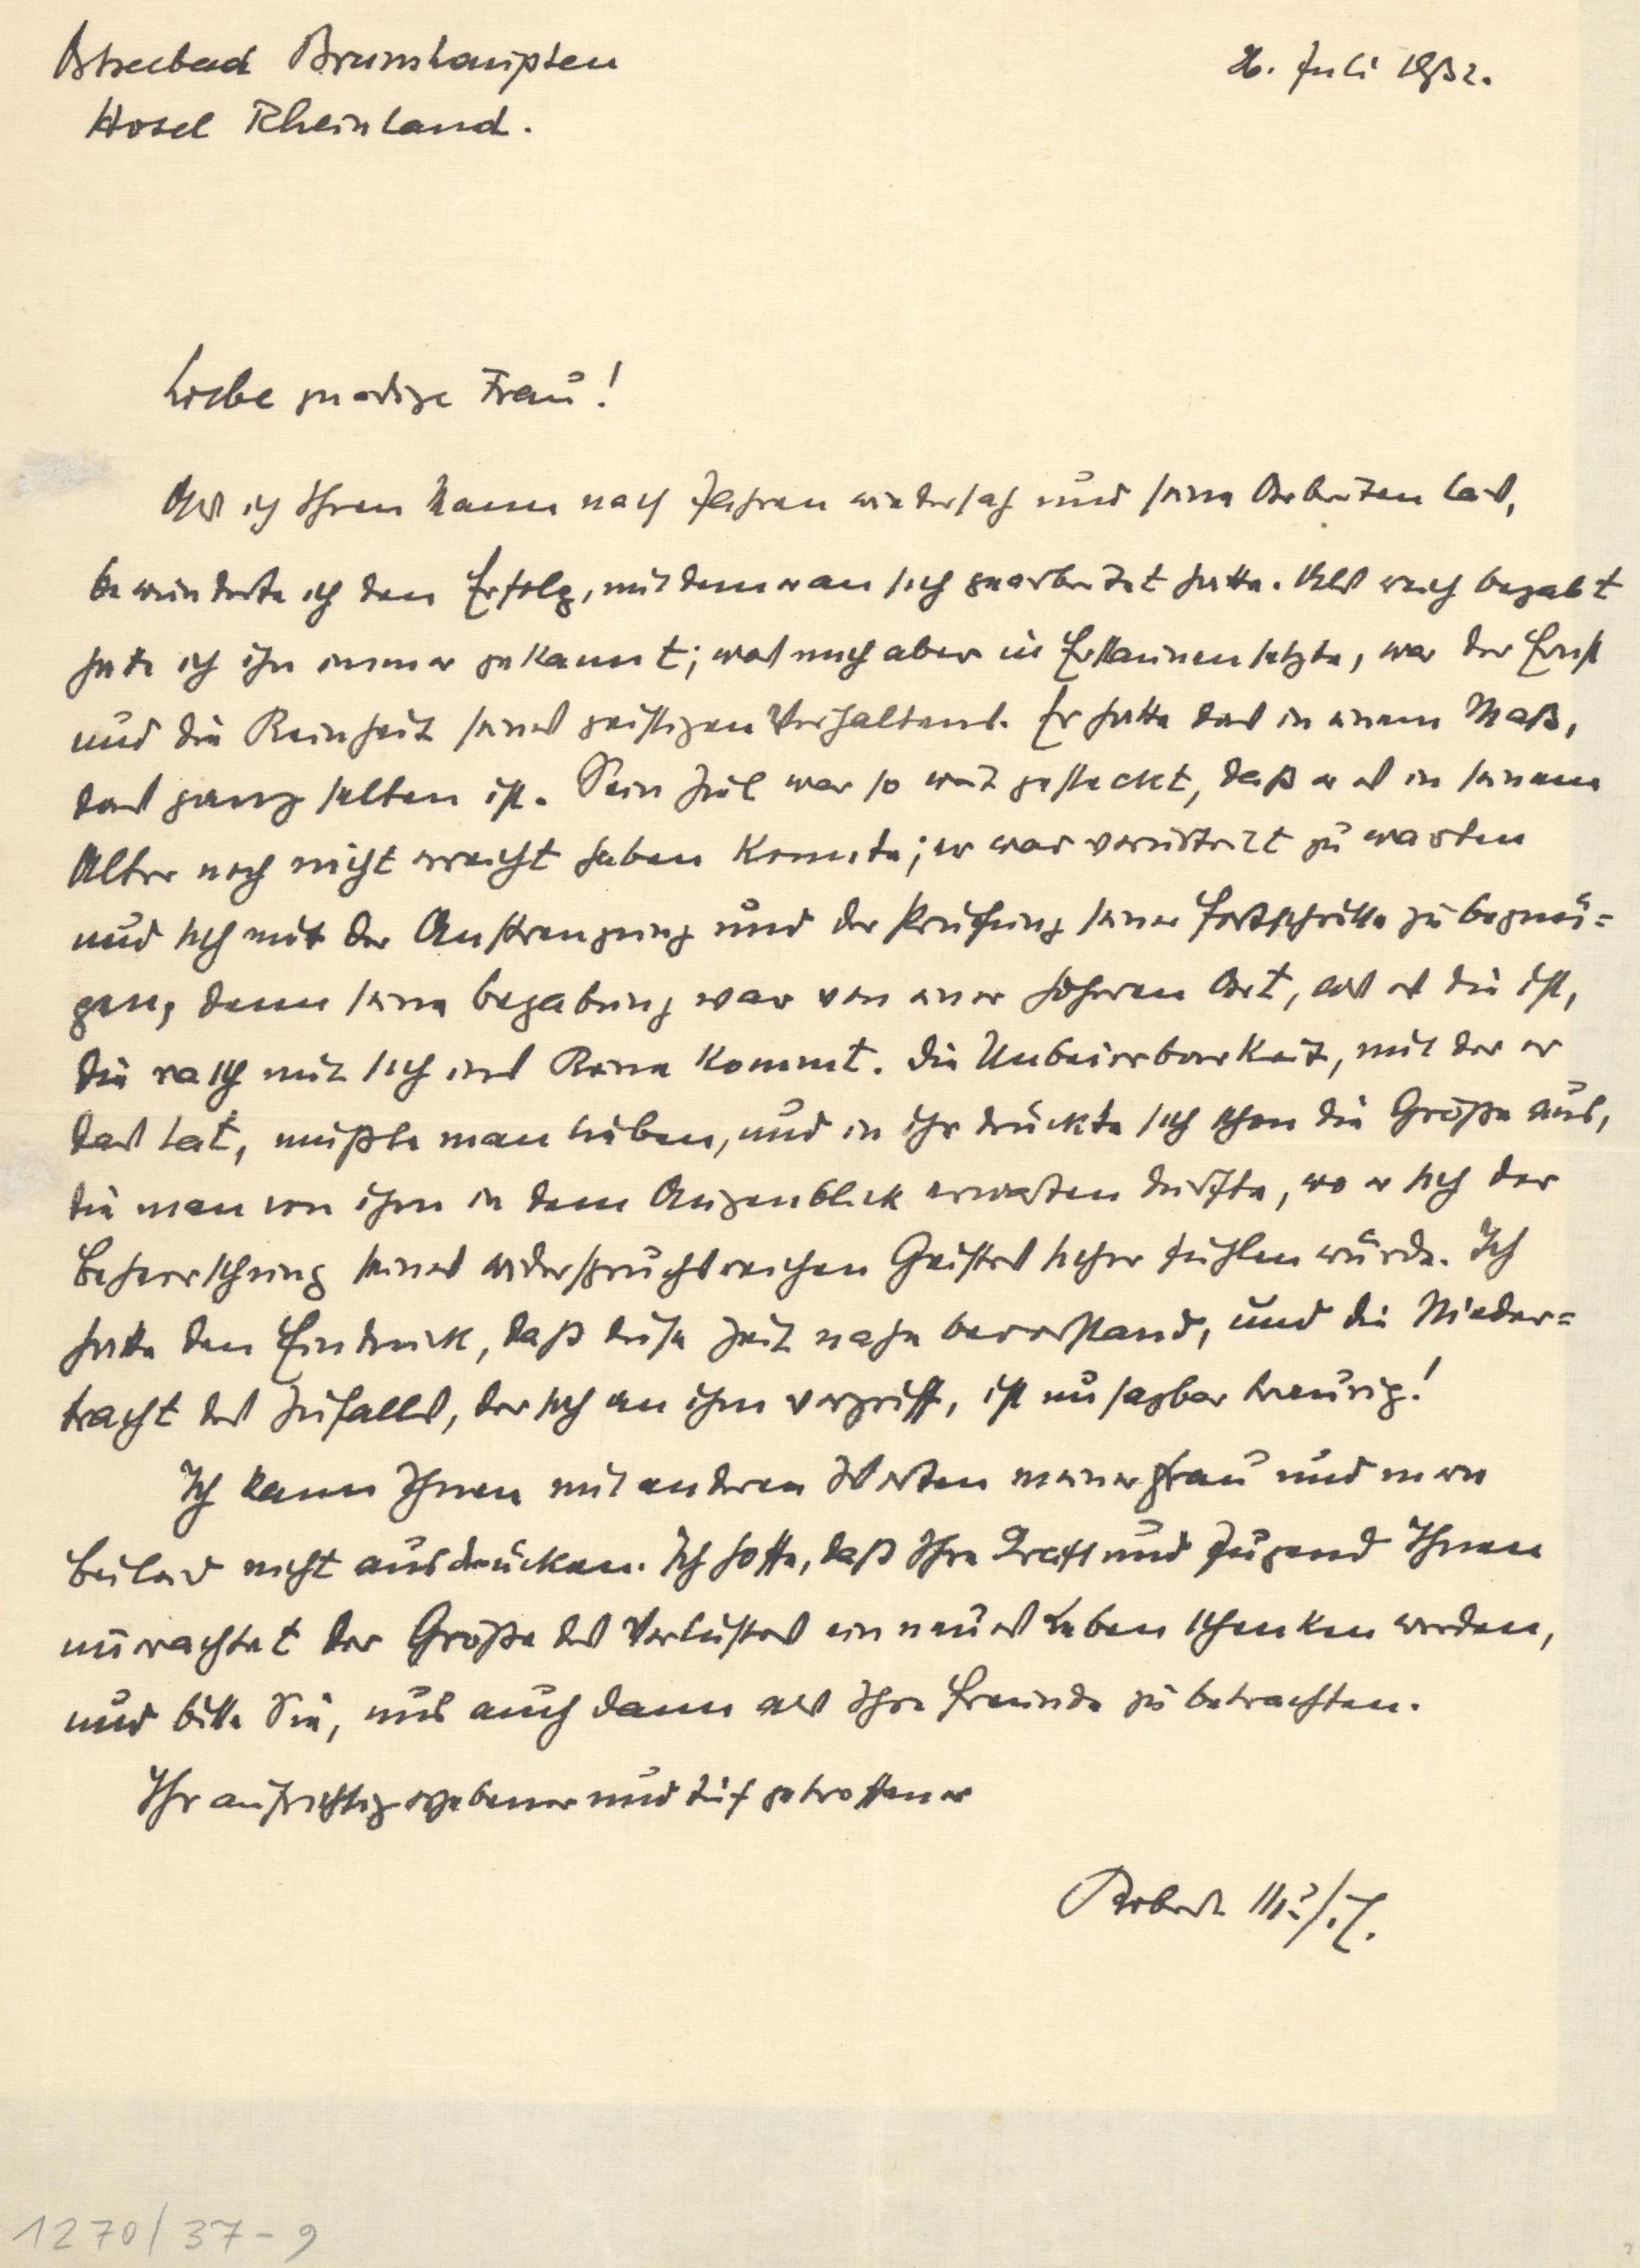 Ostseebad Brunshaupten
26. Juli 1932.
Hotel Rheinland.
Liebe gnädige Frau!
Als ich Ihren Mann nach Jahren wiedersah und seine Arbeiten las,
bewunderte ich den Erfolg, mit dem er an sich gearbeitet hatte. Als reich begabt
hatte ich ihn immer gekannt; was mich aber in Erstaunen setzte, war der Ernst
und die Reinheit seines geistigen Verhaltens. Er hatte das in einem Maß,
das ganz selten ist. Sein Ziel war so weit gesteckt, daß er es in seinem
Alter noch nicht erreicht haben konnte; er war verurteilt zu warten
und sich mit der Anstrengung und der Prüfung seiner Fortschritte zu begnü=
gen, denn seine Begabung war von einer höheren Art, als es die ist,
die rasch mit sich ins Reine kommt. Die Unbeirrbarkeit, mit der er
das tat, mußte man lieben, und in ihr drückte sich schon die Größe aus,
die man von ihm in dem Augenblick erwarten durfte, wo er sich der
Beherrschung seines widerspruchsreichen Geistes sicher fühlen würde. Ich
hatte den Eindruck, daß diese Zeit nahe bevorstand, und die Nieder=
tracht des Zufalls, der sich an ihm vergriff, ist unsagbar traurig!
Ich kann Ihnen mit anderen Worten meiner Frau und mein
Beileid nicht ausdrücken. Ich hoffe, daß Ihre Kraft und Jugend Ihnen
unerachtet der Größe des Verlustes ein neues Leben schenken werden,
und bitte Sie, uns auch dann als Ihre Freunde zu betrachten.
Ihr aufrichtig ergebener und tief getroffener
Robert Musil.
1270/37-9